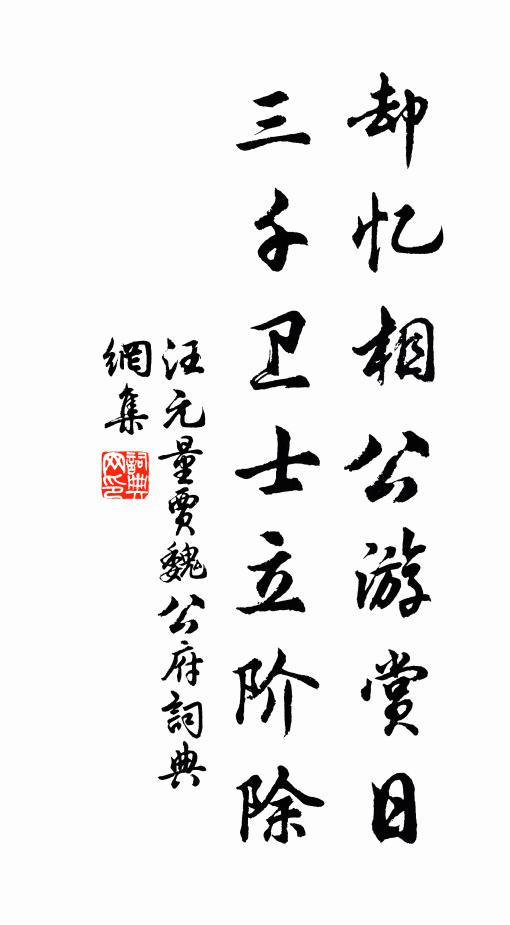 却忆相公游赏日
三千卫士立阶除
汪元量贾魏公府詞典
網集
詞典網印